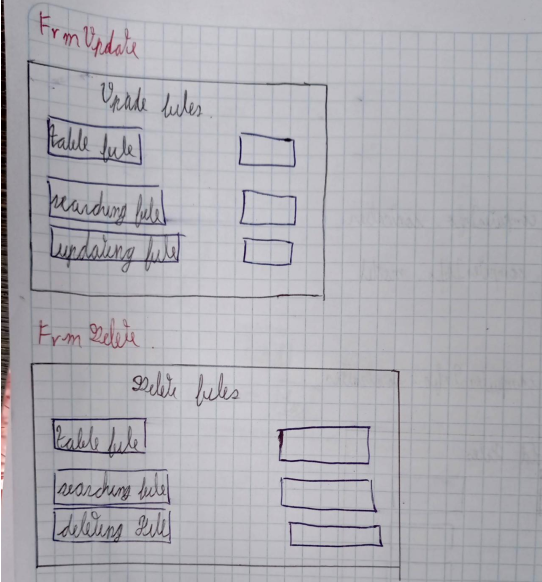 Frm Update
Update files
table file
searching file
updating file
Frm Delete
Delete files
table file
searching file
deleting file